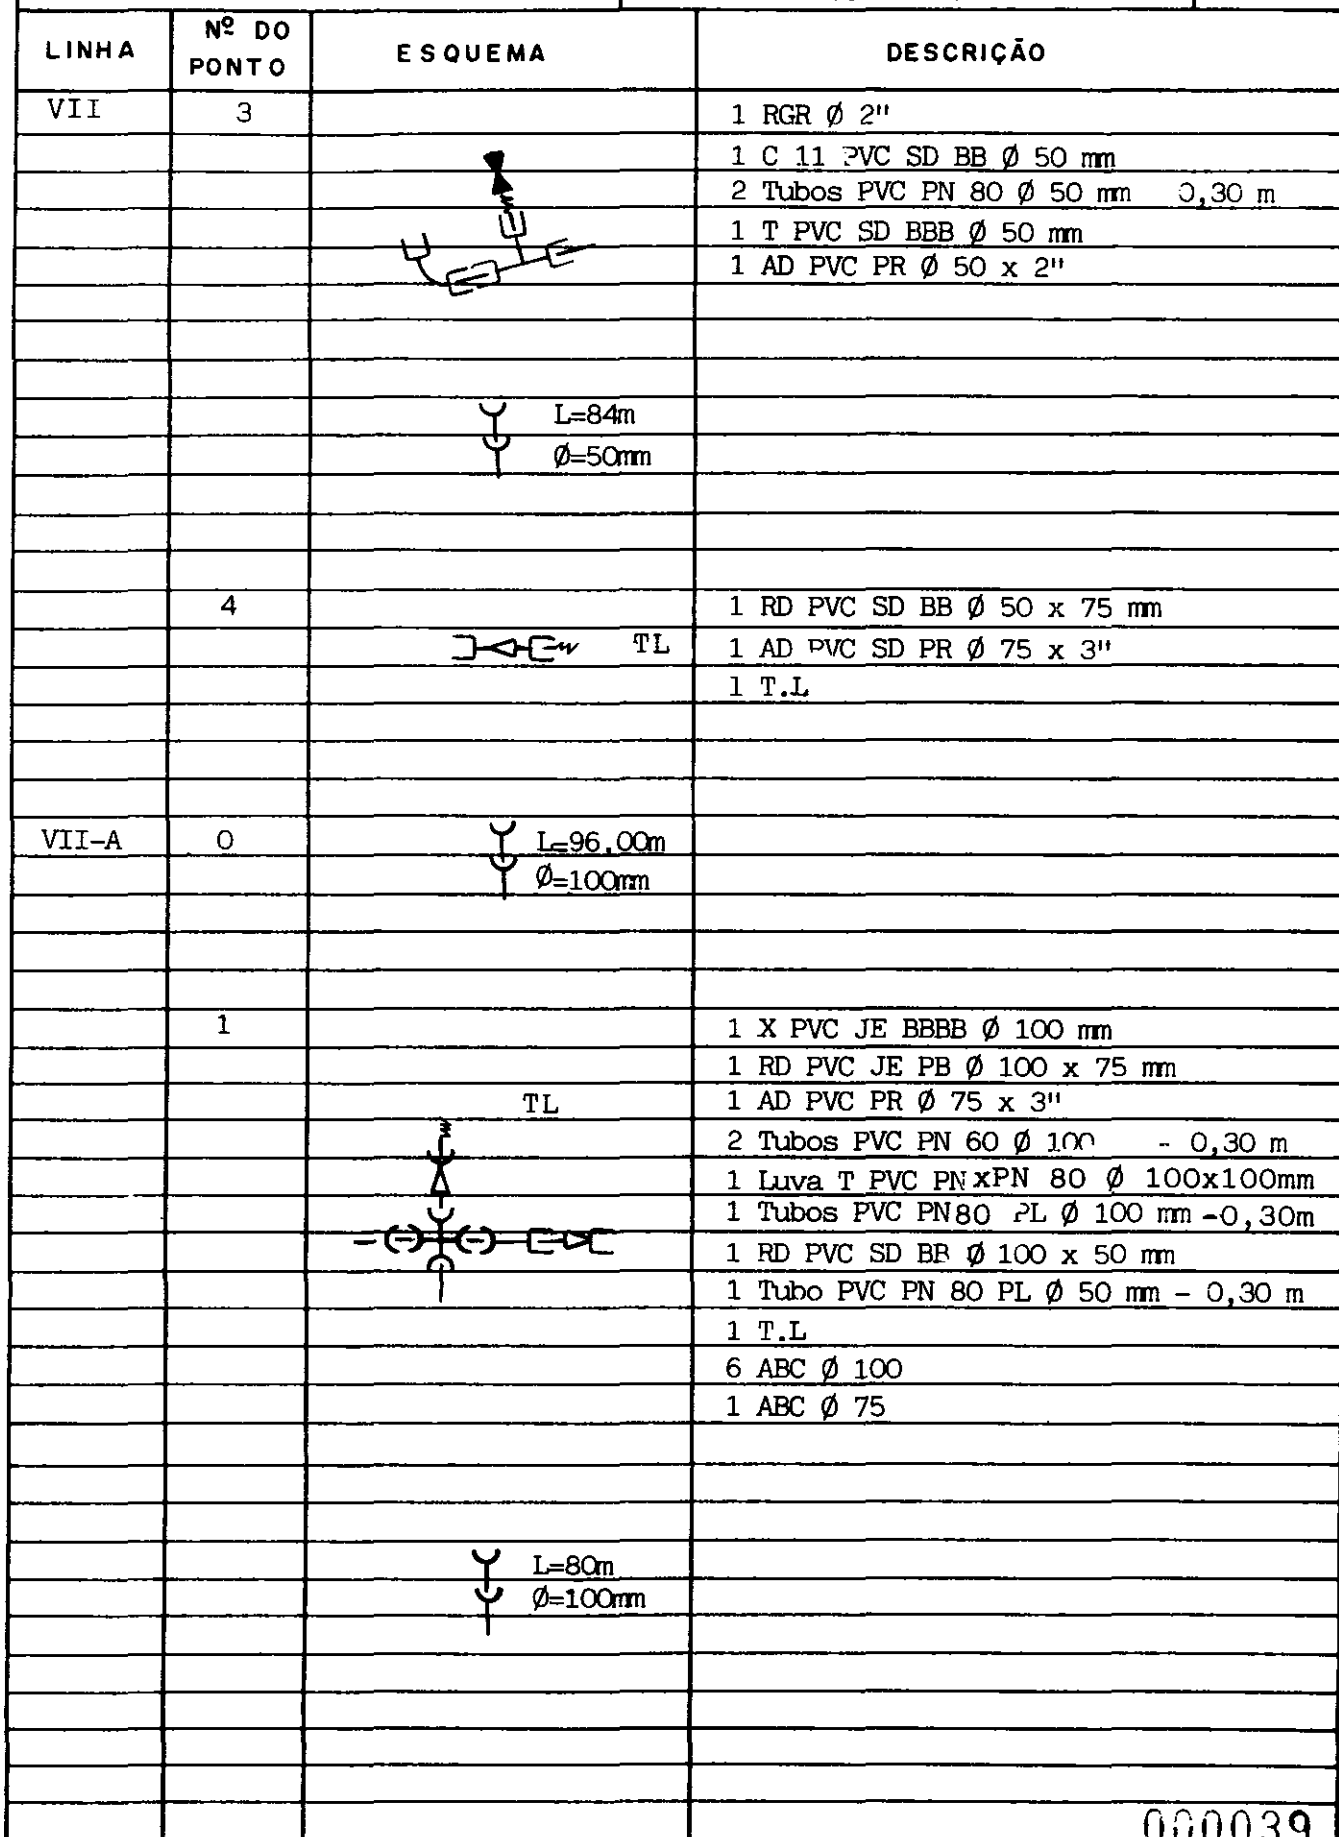 LINHA Nº DO PONTO ESQUEMA DESCRIÇÃO
VII 3 1 RGR Ø 2"
1 C 11 PVC SD BB Ø 50 mm
2 Tubos PVC PN 80 Ø 50 mm 0,30 m
1 T PVC SD BBB Ø 50 mm
1 AD PVC PR Ø 50 x 2"
L=84m
Ø=50mm
4 1 RD PVC SD BB Ø 50 x 75 mm
TL 1 AD PVC SD PR Ø 75 x 3"
1 T.L
VII-A 0 L=96,00m
Ø=100mm
1 1 X PVC JE BBBB Ø 100 mm
1 RD PVC JE PB Ø 100 x 75 mm
TL 1 AD PVC PR Ø 75 x 3"
2 Tubos PVC PN 60 Ø 100 - 0,30 m
1 Luva T PVC PNxPN 80 Ø 100x100mm
1 Tubos PVC PN80 PL Ø 100 mm -0,30m
1 RD PVC SD BB Ø 100 x 50 mm
1 Tubo PVC PN 80 PL Ø 50 mm - 0,30 m
1 T.L
6 ABC Ø 100
1 ABC Ø 75
L=80m
Ø=100mm
000039